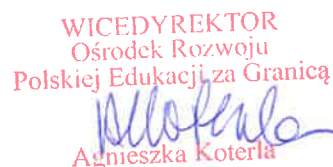 WICEDYREKTOR
Ośrodek Rozwoju
Polskiej Edukacji za Granicą
Agnieszka Koterla